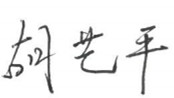 胡艺平